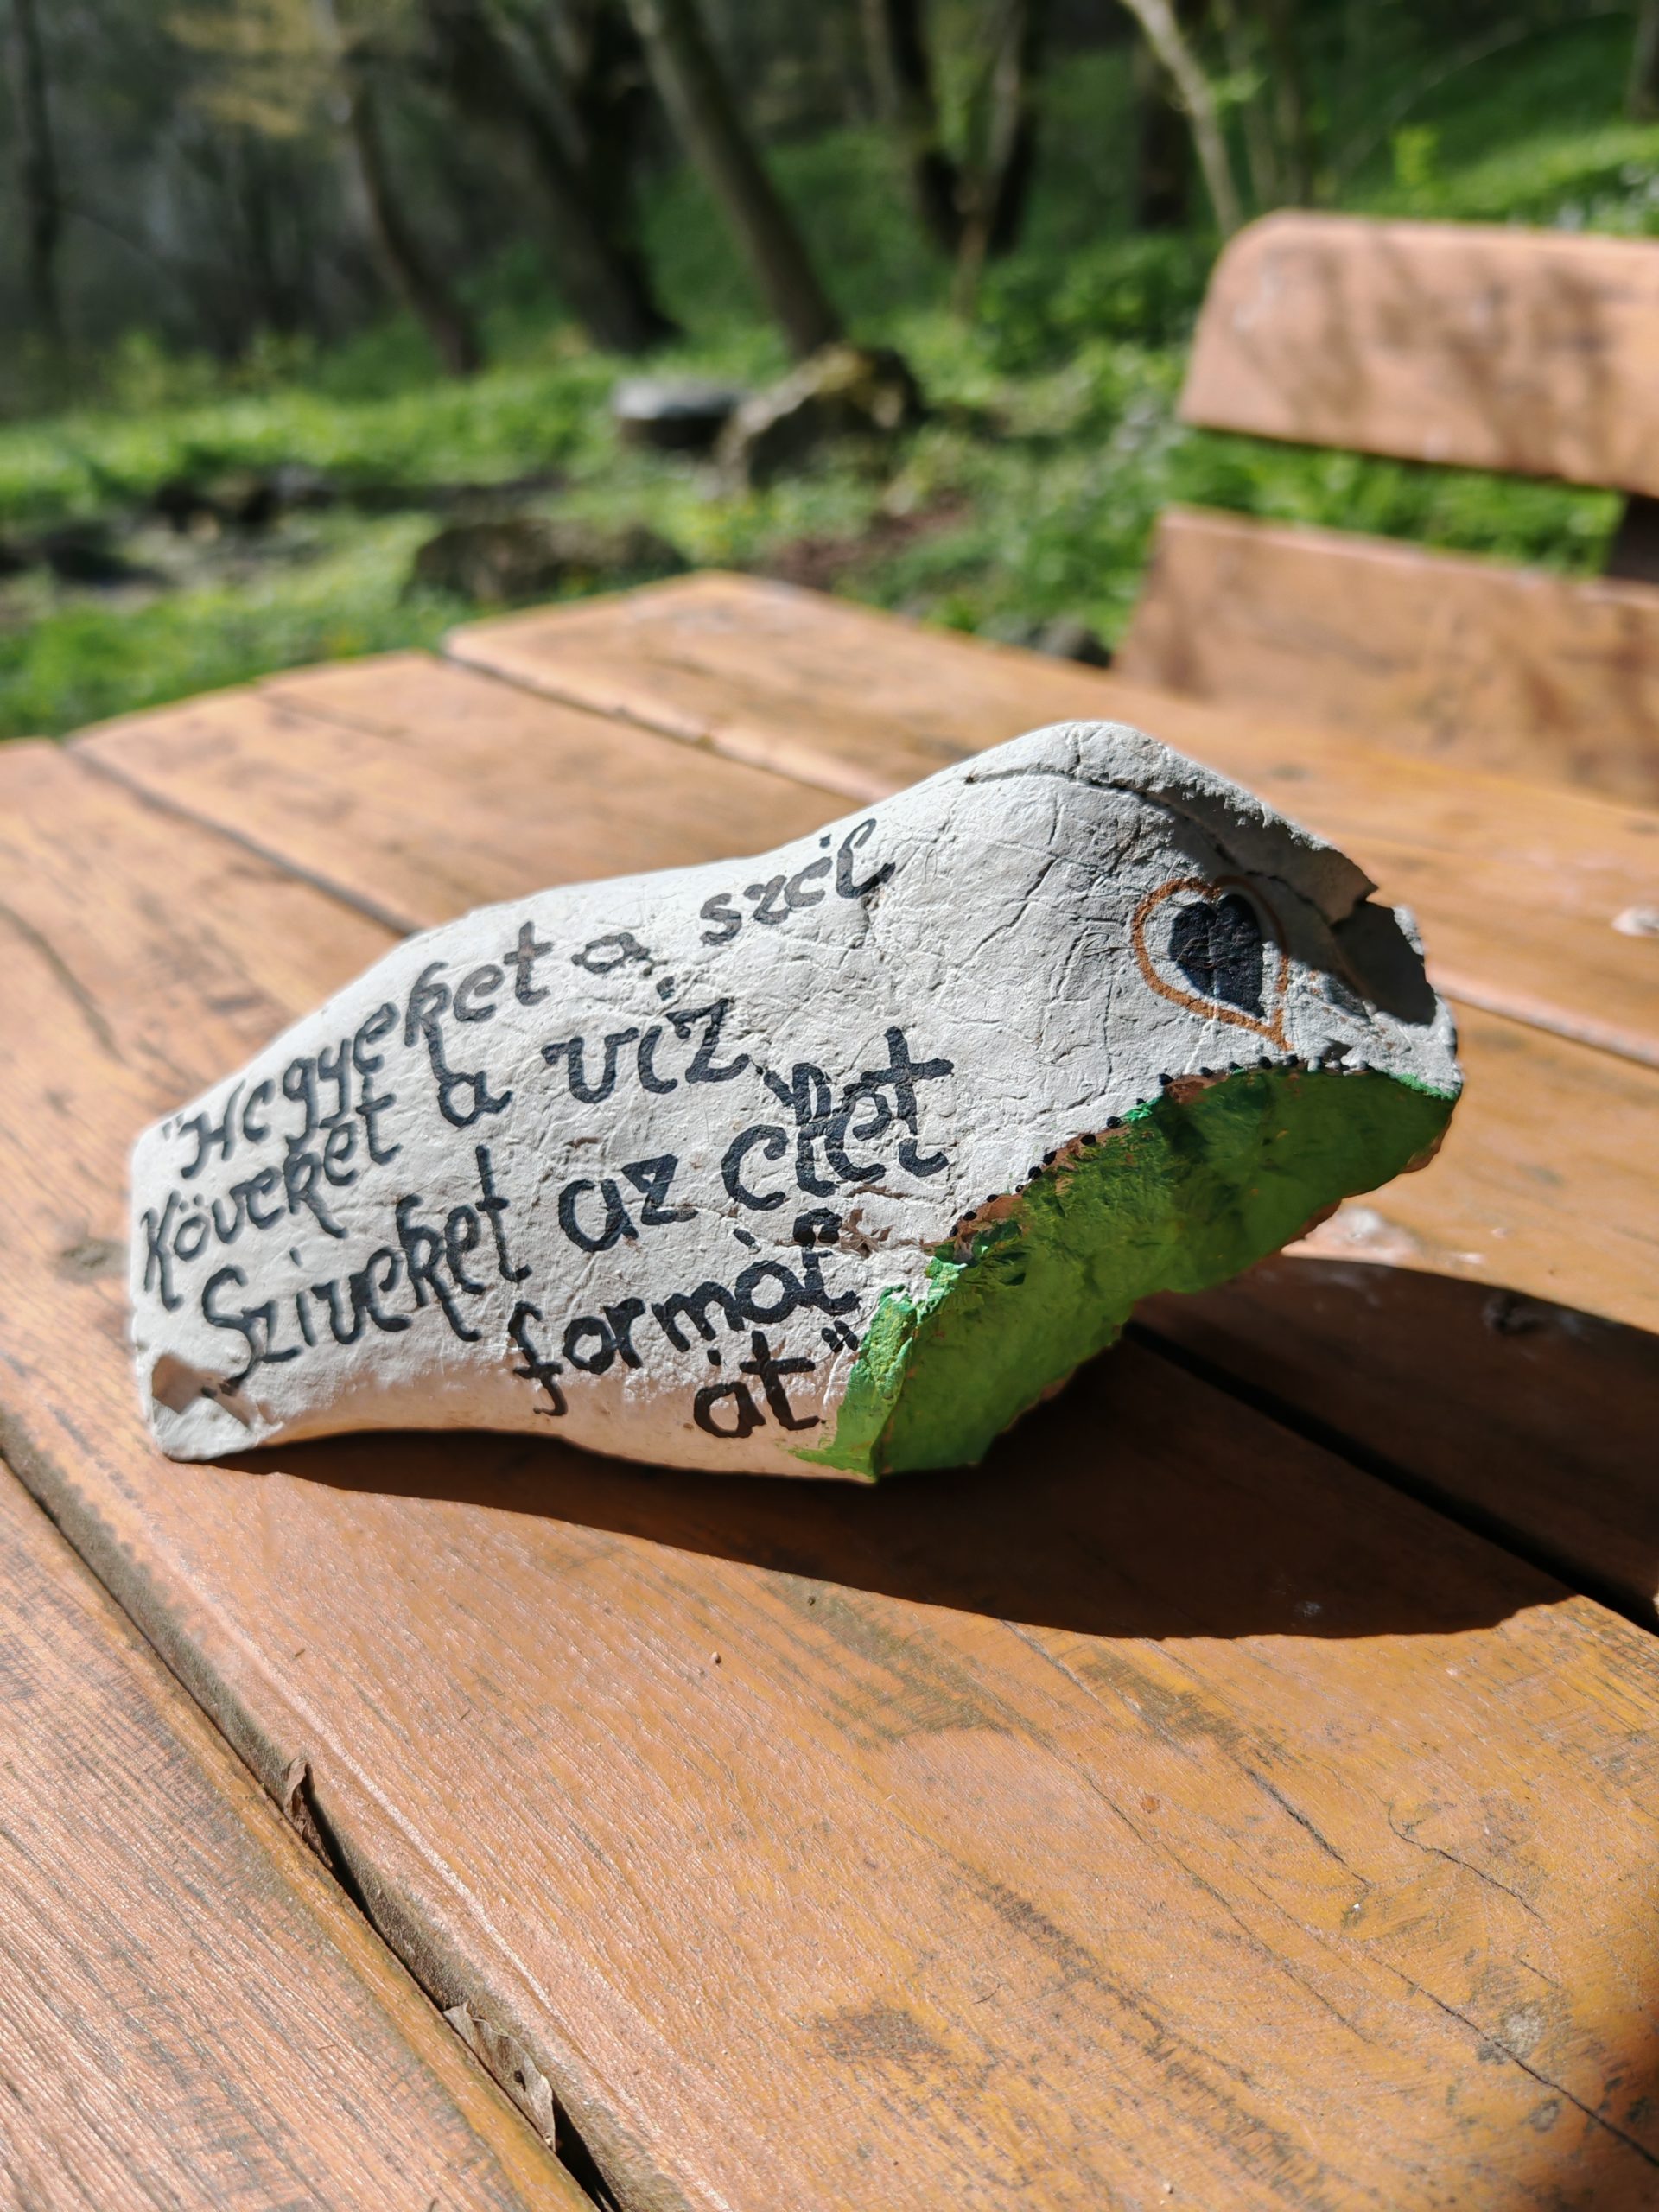 "Hegyeket a szél
Köveket a víz
Sziveket az élet
formál
át"